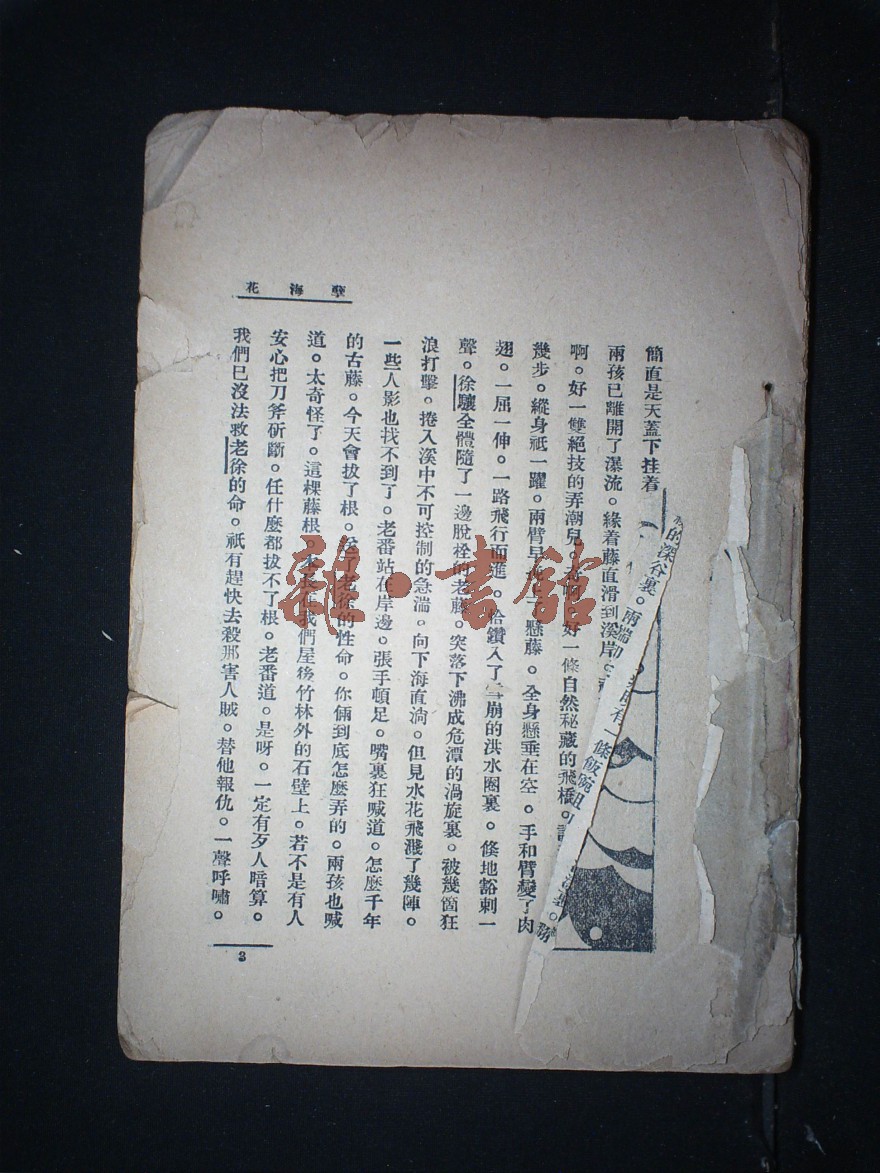 孽海花
簡直是天蓋下挂着
的深谷裏。兩端 有一條飯碗
兩孩已離開了瀑流。緣着藤直滑到溪岸。
啊。好一雙絕技的弄潮兒。 好一條自然秘藏的飛橋。
幾步。縱身祇一躍。兩臂早 懸藤。全身懸垂在空。手和臂變了肉
翅。一屈一伸。一路飛行而進。恰鑽入了 崩的洪水圈裏。倏地豁剌一
聲。徐驤全體隨了一邊脫栓的老藤。突落下沸成危潭的渦旋裏。被幾箇狂
浪打擊。捲入溪中不可控制的急湍。向下海直淌。但見水花飛濺了幾陣。
一些人影也找不到了。老番站在岸邊。張手頓足。嘴裏狂喊道。怎麼千年
的古藤。今天會拔了根。 了老徐的性命。你倆到底怎麼弄的。兩孩也喊
道。太奇怪了。這棵藤根。 我們屋後竹林外的石壁上。若不是有人
安心把刀斧斫斷。任什麼都拔不了根。老番道。是呀。一定有歹人暗算。
我們已沒法救老徐的命。祇有趕快去殺那害人賊。替他報仇。一聲呼嘯。
3
雜·書館